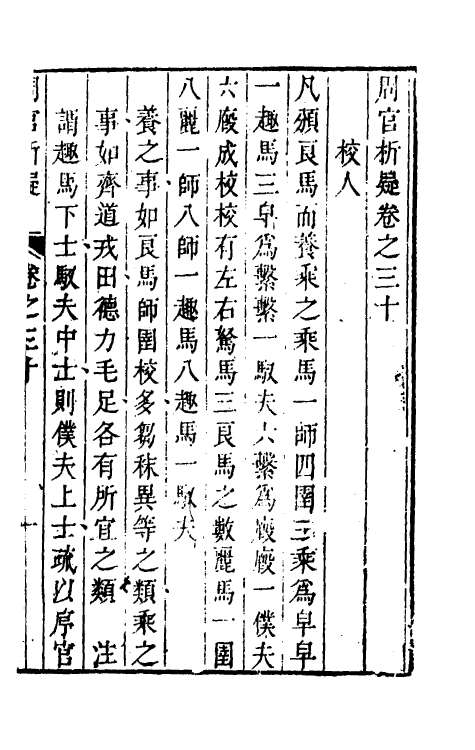 周官析疑卷之三十
校人
凡頒良馬而養乘之乘馬一師四圉三乘爲皁皁
一趣馬三皁爲繫繫一馭夫六繫爲廄廄一僕夫
六廄成校校有左右駑馬三良馬之數麗馬一圉
八麗一師八師一趣馬八趣馬一馭夫
養之事如良馬師圉校多芻秣異等之類乘之
事如齊道戎田德力毛足各有所宜之類　注
謂趣馬下士馭夫中士則僕夫上士疏以序官
周官析疑
卷之三十
一